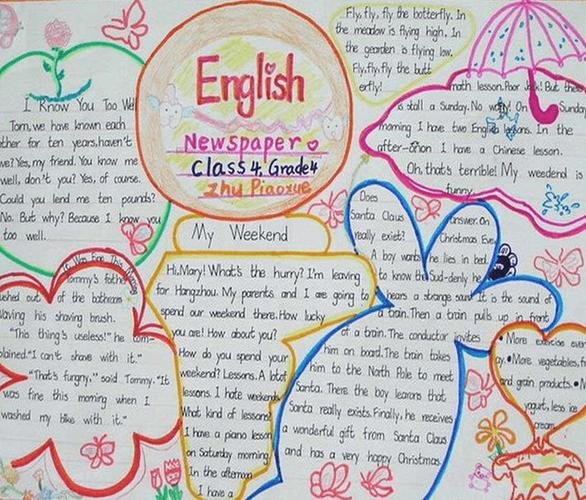 English
Newspaper
Class 4. Grade 4
Zhu Piaoxue
I Know You Too Well
Tom, we have known each
other for ten years, haven't
we? Yes, my friend. You know me
well, don't you? Yes, of course.
Could you lend me ten pounds?
No. But why? Because I know you
too well.
Fly, fly, fly the botterfly. In
the meadow is flying high. In
the gearden is flying low.
Fly, fly, fly the butt
erfly!
My Weekend
Hi, Mary! What's the hurry? I'm leaving
for Hangzhou. My parents and I are going to
spend our weekend there. How lucky
you are! How about you?
How do you spend your
weekend? Lessons. A lot
lessons. I hate weekends
What kind of lessons?
I have a piano lesson
on Saturday morning.
In the afternoon
I have a
math lesson. Poor Jack! But these
is stall a Sunday. No worry! On Sunday
morning I have two English lessons. In the
after-shon I have a Chinese lesson.
Oh, that's terrible! My weedend is
funny.
It Was Fine This Morning
Tommy's father
rushed out of the bathroom
waving his shaving brush.
"This thing's useless!" he com-
plained. "I can't shave with it."
"That's furgny," said Tommy. "It
was fine this morning when I
washed my bike with it."
Does
Santa Claus
really exist?
A boy wants
to know the
answer. On
Christmas Eve
he lies in bed.
Sud-denly he
hears a strange sound. It is the sound of
a train. Then a train pulls up in front
of a train. The conductor invites
him on board. The train takes
him to the North Pole to meet
Santa. There the boy learns that
Santa really exists. Finally, he receives
a wonderful gift from Santa Claus
and has a very happy Christmas.
• More exercise ever
y. • More vegetables, f
and grain products. • M
yogurt, less ice
cream.